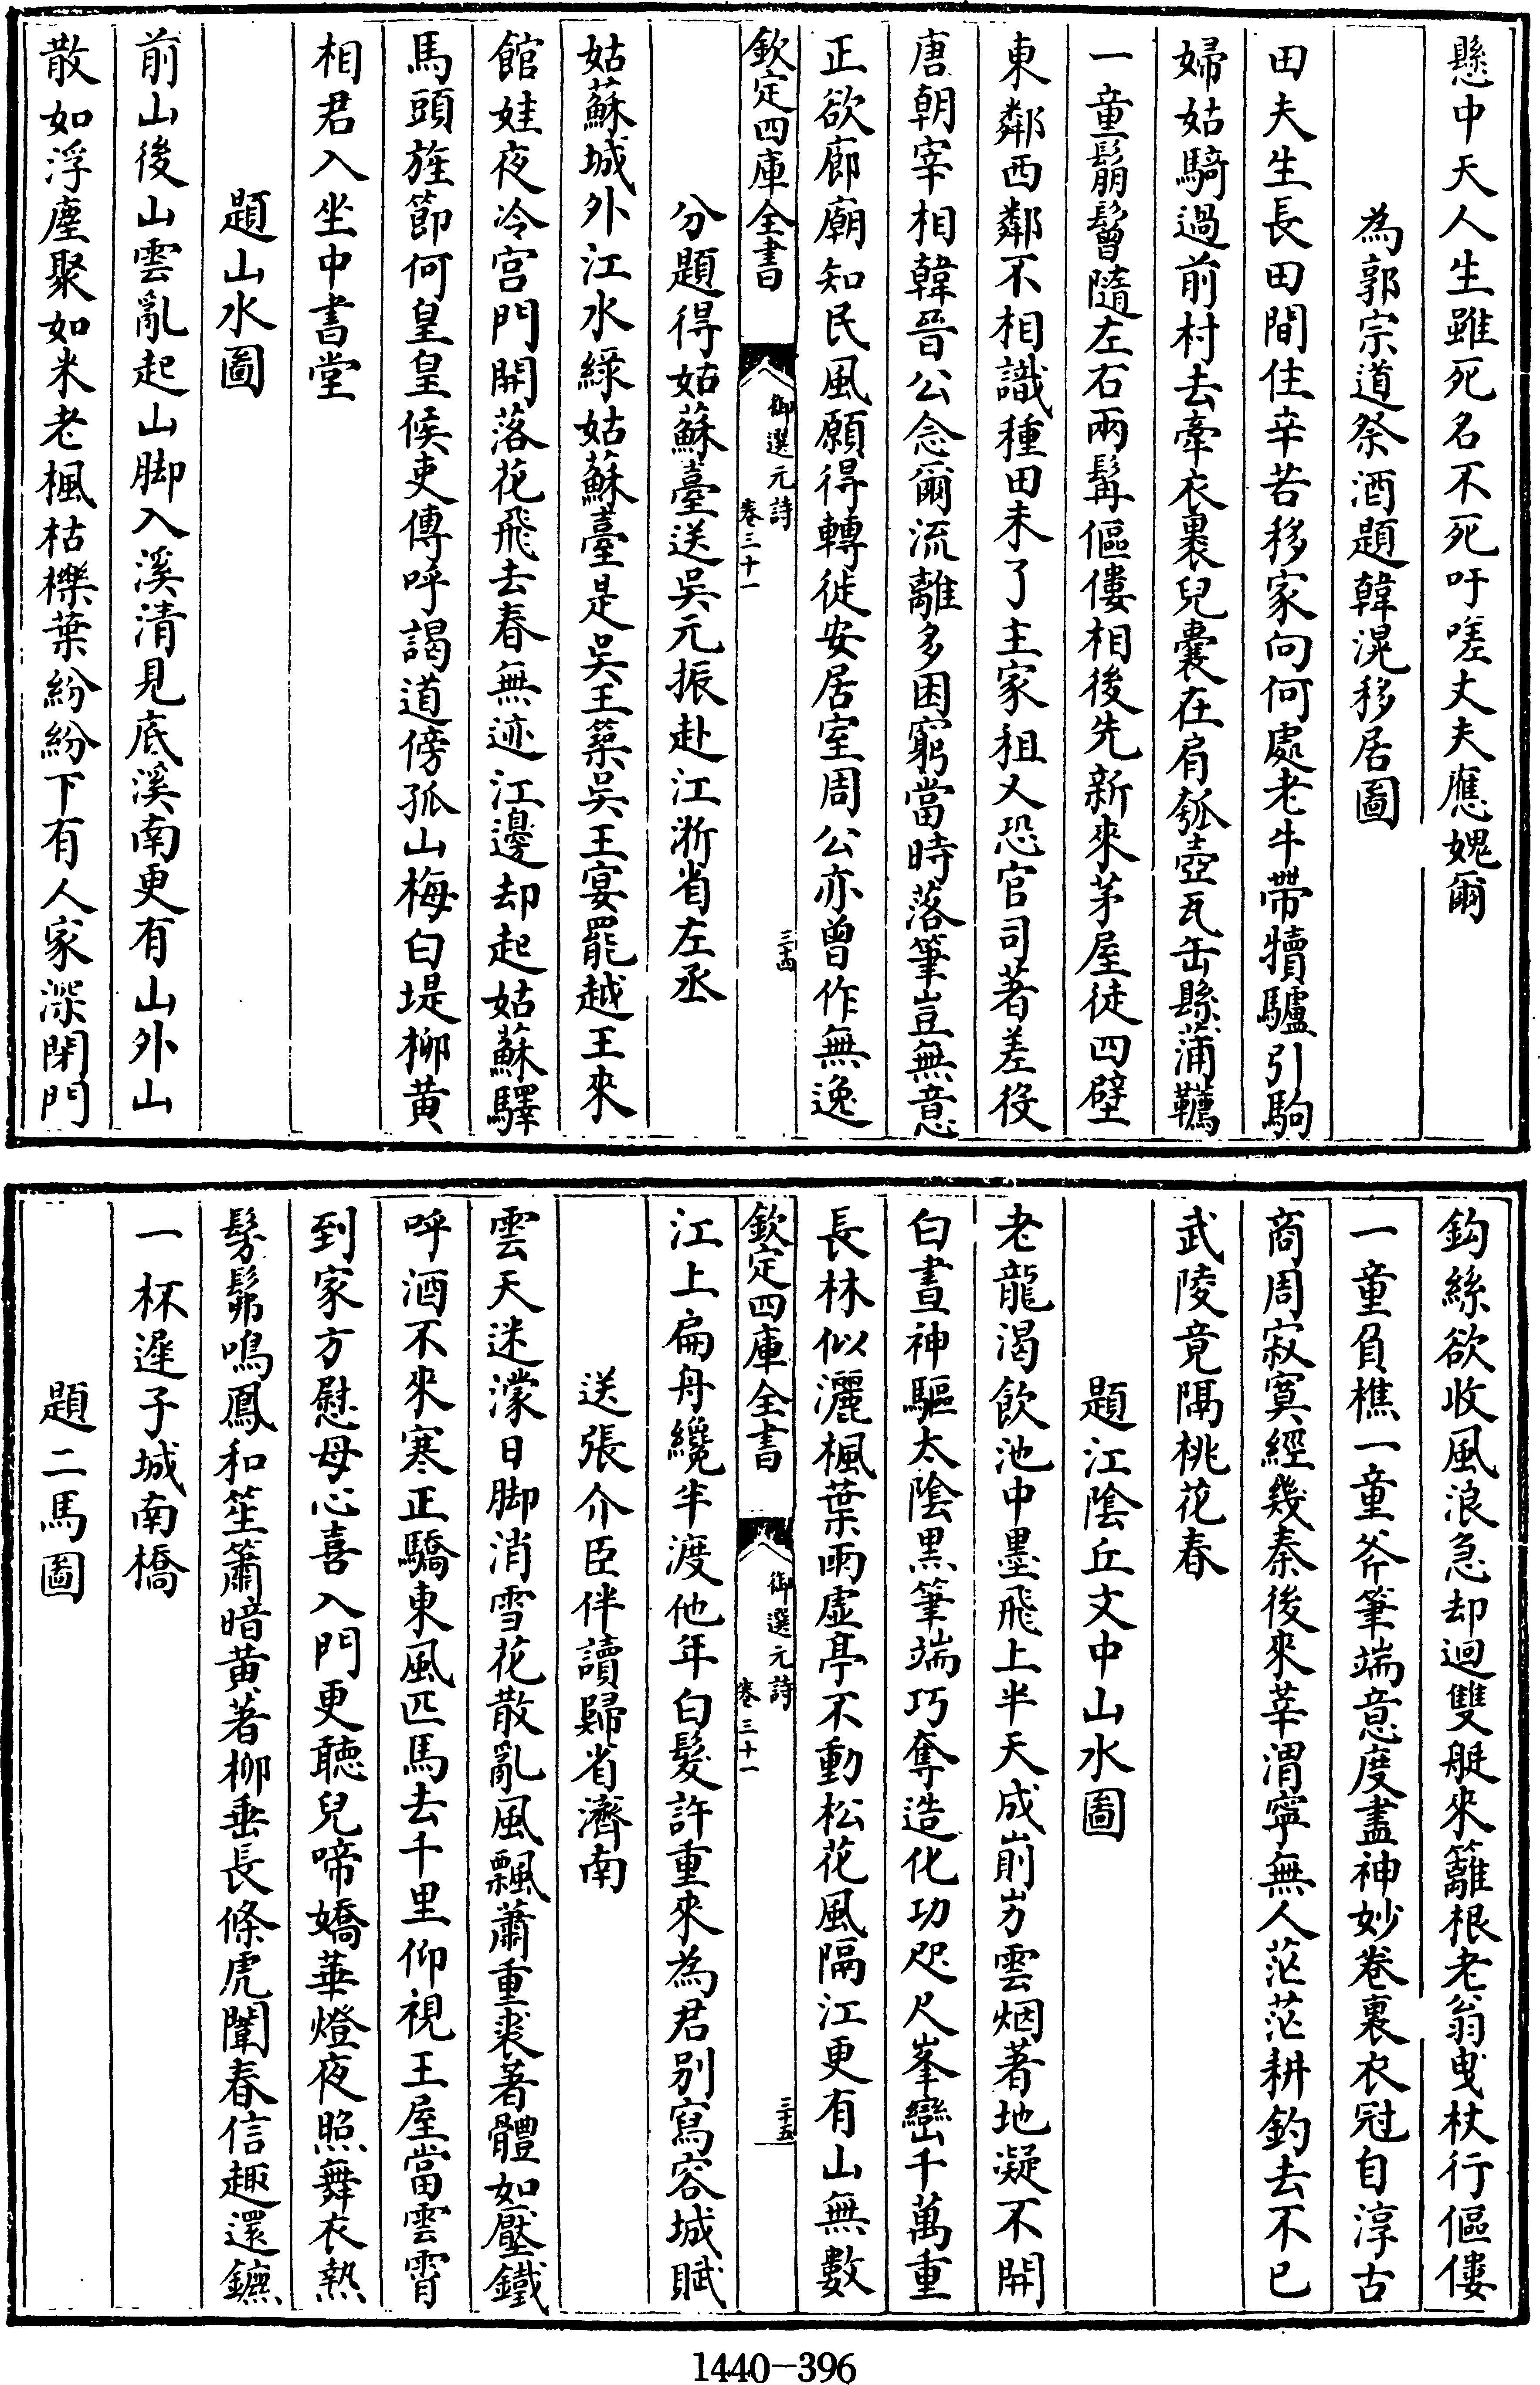 懸中天人生雖死名不死吁嗟丈夫應媿爾
為郭宗道祭酒題韓滉移居圖
田夫生長田間住辛苦移家向何處老牛帶犢驢引駒
婦姑騎過前村去牽衣裹兒囊在肩瓠壺瓦缶縣蒲韉
一童鬅鬙隨左右兩髯傴僂相後先新來茅屋徒四壁
東鄰西鄰不相識種田未了主家租又恐官司著差役
唐朝宰相韓晉公念爾流離多困窮當時落筆豈無意
正欲廊廟知民風願得轉徙安居室周公亦曾作無逸
欽定四庫全書
御選元詩
卷三十一
三十四
分題得姑蘇臺送吳元振赴江淛省左丞
姑蘇城外江水緑姑蘇臺是吳王築吳王宴罷越王來
館娃夜冷宮門開落花飛去春無迹江邊却起姑蘇驛
馬頭旌節何皇皇候吏傳呼謁道傍孤山梅白堤柳黄
相君入坐中書堂
題山水圖
前山後山雲亂起山脚入溪清見底溪南更有山外山
散如浮塵聚如米老楓枯櫟葉紛紛下有人家深閉門
鈎絲欲收風浪急却迴雙艇來籬根老翁曳杖行傴僂
一童負樵一童斧筆端意度盡神妙卷裏衣冠自淳古
商周寂寞經幾秦後來莘渭寧無人茫茫耕釣去不已
武陵竟隔桃花春
題江陰丘文中山水圖
老龍渴飲池中墨飛上半天成崱屴雲烟著地凝不開
白晝神驅太陰黑筆端巧奪造化功咫尺峯巒千萬重
長林似灑楓葉雨虛亭不動松花風隔江更有山無數
欽定四庫全書
御選元詩
卷三十一
三十五
江上扁舟纜半渡他年白髮許重來為君别寫容城賦
送張介臣伴讀歸省濟南
雲天迷濛日脚消雪花散亂風飄蕭重裘著體如壓鐵
呼酒不來寒正驕東風匹馬去千里仰視王屋當雲霄
到家方慰母心喜入門更聽兒啼嬌華燈夜照舞衣熱
髣髴鳴鳳和笙簫暗黄著柳垂長條虎闈春信趣還鑣
一杯遲子城南橋
題二馬圖
1440—396